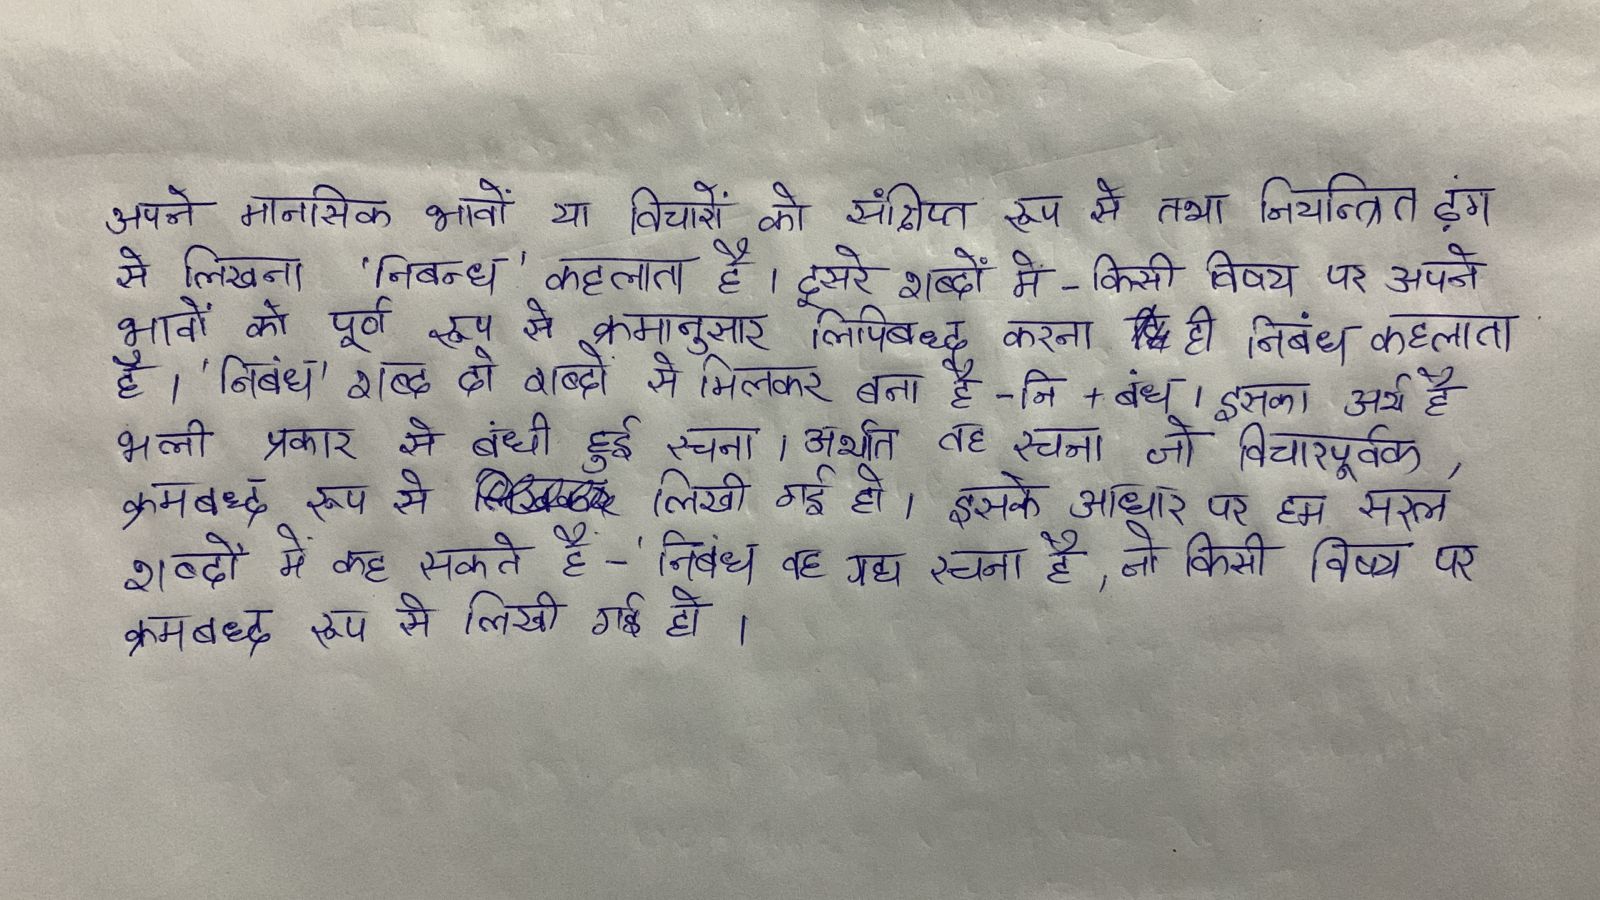 अपने मानसिक भावों या विचारों को संक्षिप्त रूप से तथा नियन्त्रित ढ़ंग
से लिखना 'निबन्ध' कहलाता है। दूसरे शब्दों में - किसी विषय पर अपने
भावों को पूर्व रूप से क्रमानुसार लिपिबध्द करना ही निबंध कहलाता
है। 'निबंध' शब्द दो शब्दों से मिलकर बना है - नि + बंध। इसका अर्थ है
भली प्रकार से बंधी हुई रचना। अर्थात वह रचना जो विचारपूर्वक,
क्रमबध्द रूप से लिखी गई हो। इसके आधार पर हम सरल
शब्दों में कह सकते हैं - 'निबंध वह गद्य रचना है, जो किसी विषय पर
क्रमबध्द रूप से लिखी गई हो।